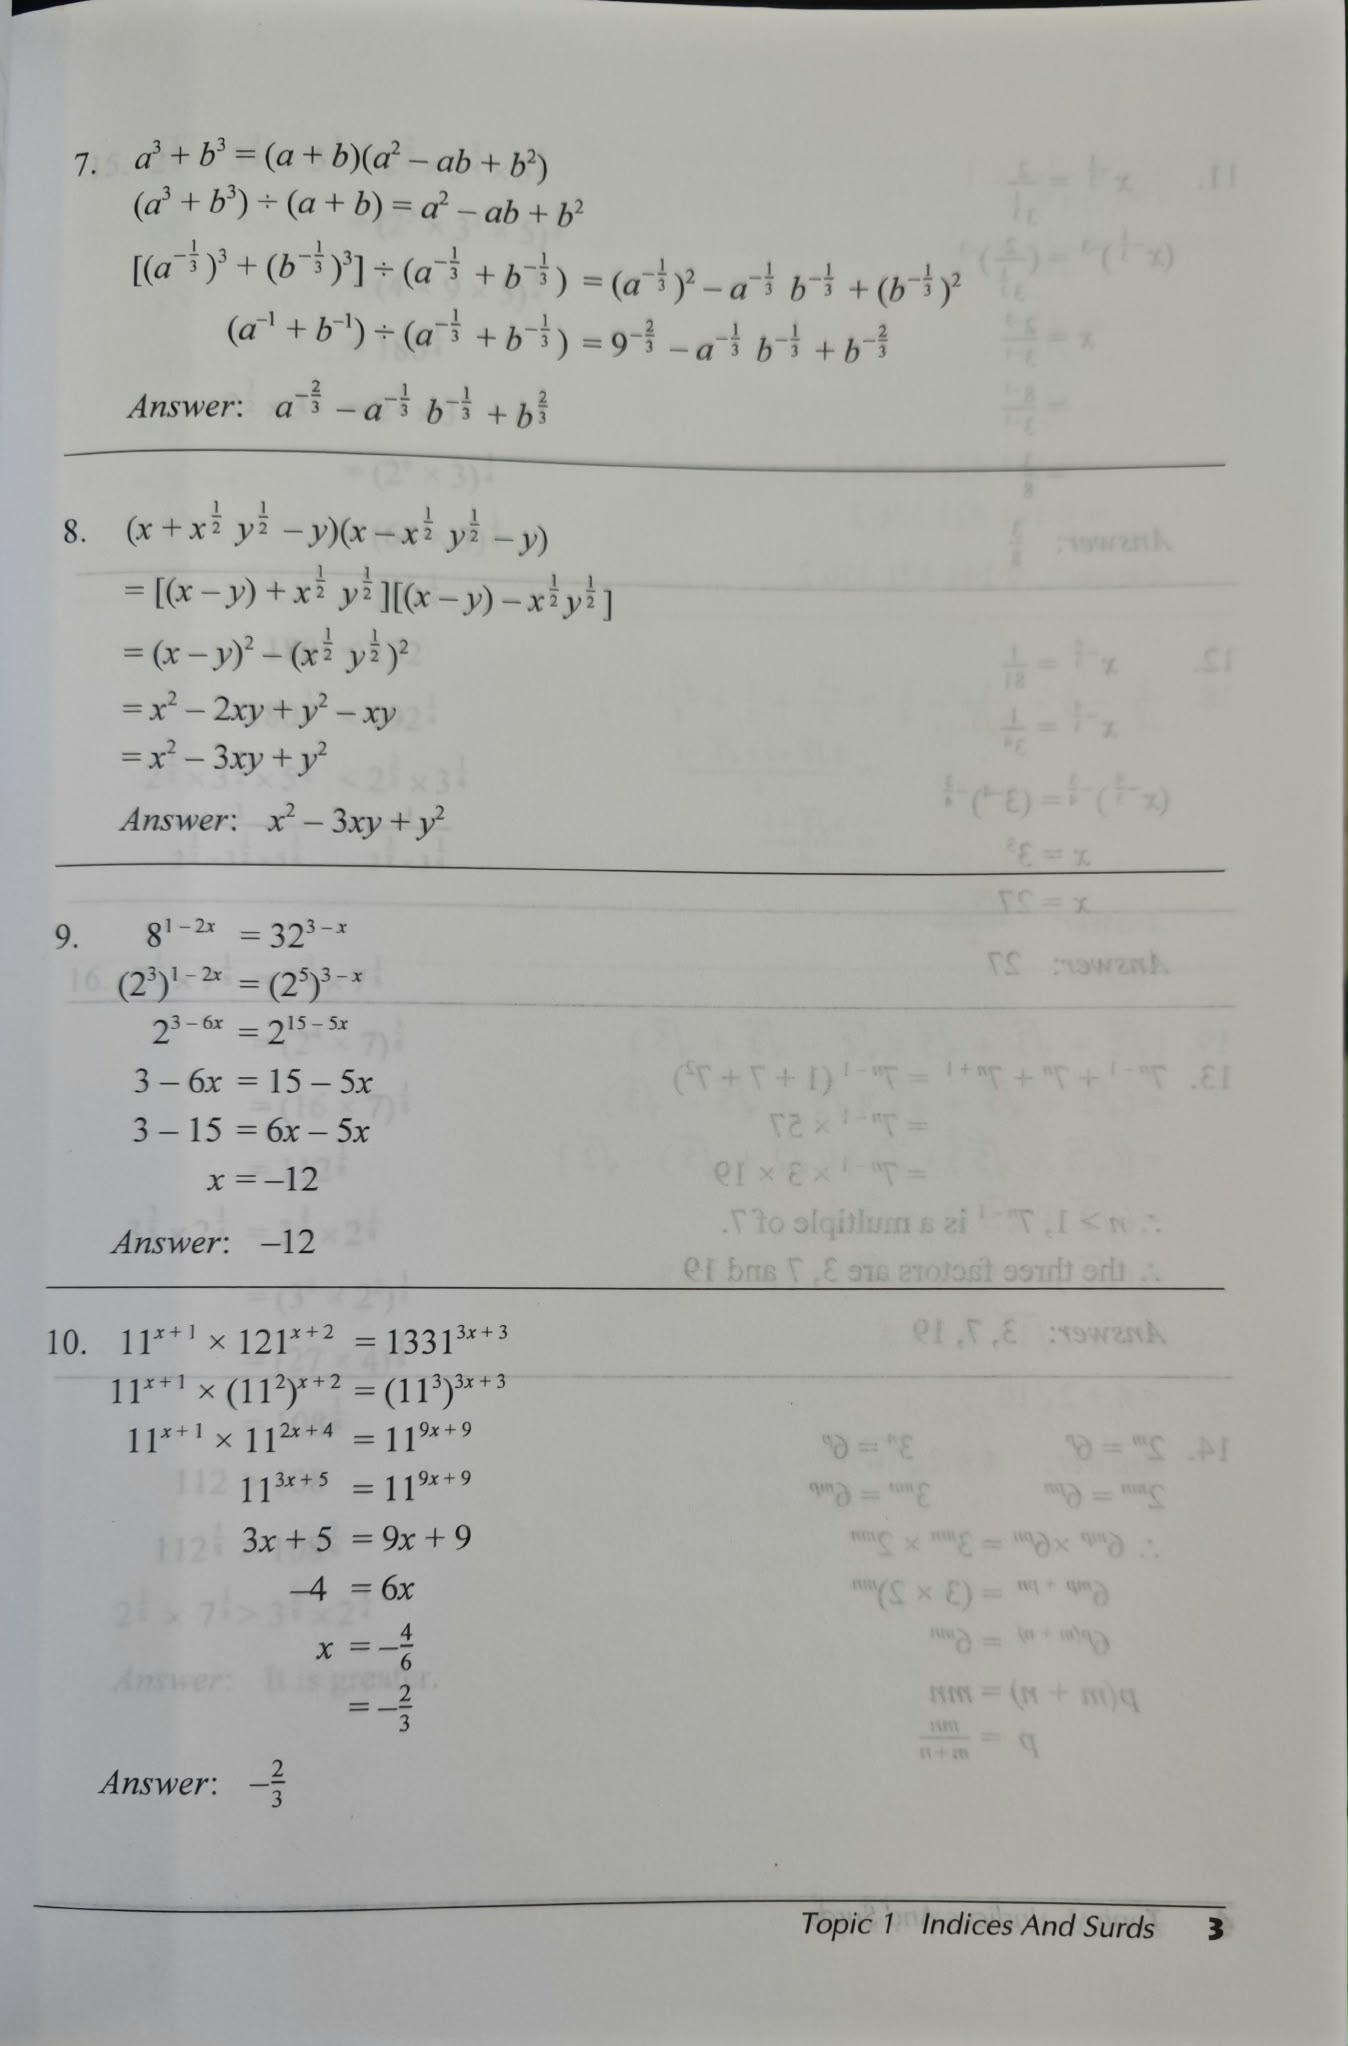 7. a³ + b³ = (a + b)(a² – ab + b²)
(a³ + b³) ÷ (a + b) = a² – ab + b²
[(a^(–1/3))³ + (b^(–1/3))³] ÷ (a^(–1/3) + b^(–1/3)) = (a^(–1/3))² – a^(–1/3) b^(–1/3) + (b^(–1/3))²
(a⁻¹ + b⁻¹) ÷ (a^(–1/3) + b^(–1/3)) = 9^(–2/3) – a^(–1/3) b^(–1/3) + b^(–2/3)
Answer: a^(–2/3) – a^(–1/3) b^(–1/3) + b^(2/3)
8. (x + x^(1/2) y^(1/2) – y)(x – x^(1/2) y^(1/2) – y)
= [(x – y) + x^(1/2) y^(1/2)][(x – y) – x^(1/2) y^(1/2)]
= (x – y)² – (x^(1/2) y^(1/2))²
= x² – 2xy + y² – xy
= x² – 3xy + y²
Answer: x² – 3xy + y²
9. 8^(1 – 2x) = 32^(3 – x)
(2³)^(1 – 2x) = (2⁵)^(3 – x)
2^(3 – 6x) = 2^(15 – 5x)
3 – 6x = 15 – 5x
3 – 15 = 6x – 5x
x = –12
Answer: –12
10. 11^(x + 1) × 121^(x + 2) = 1331^(3x + 3)
11^(x + 1) × (11²)^(x + 2) = (11³)^(3x + 3)
11^(x + 1) × 11^(2x + 4) = 11^(9x + 9)
11^(3x + 5) = 11^(9x + 9)
3x + 5 = 9x + 9
–4 = 6x
x = –4/6
= –2/3
Answer: –2/3
Topic 1 Indices And Surds 3